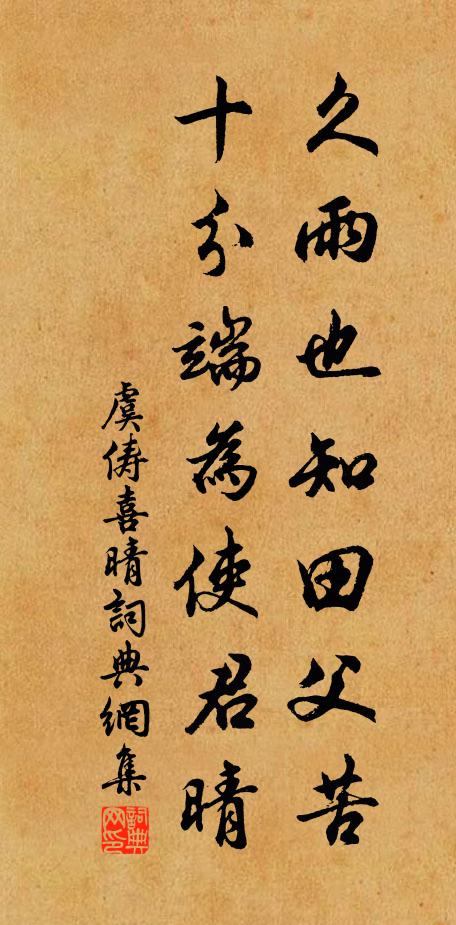 久雨也知田父苦
十分端為使君晴
虞俦喜晴詞典網集
詞典网印